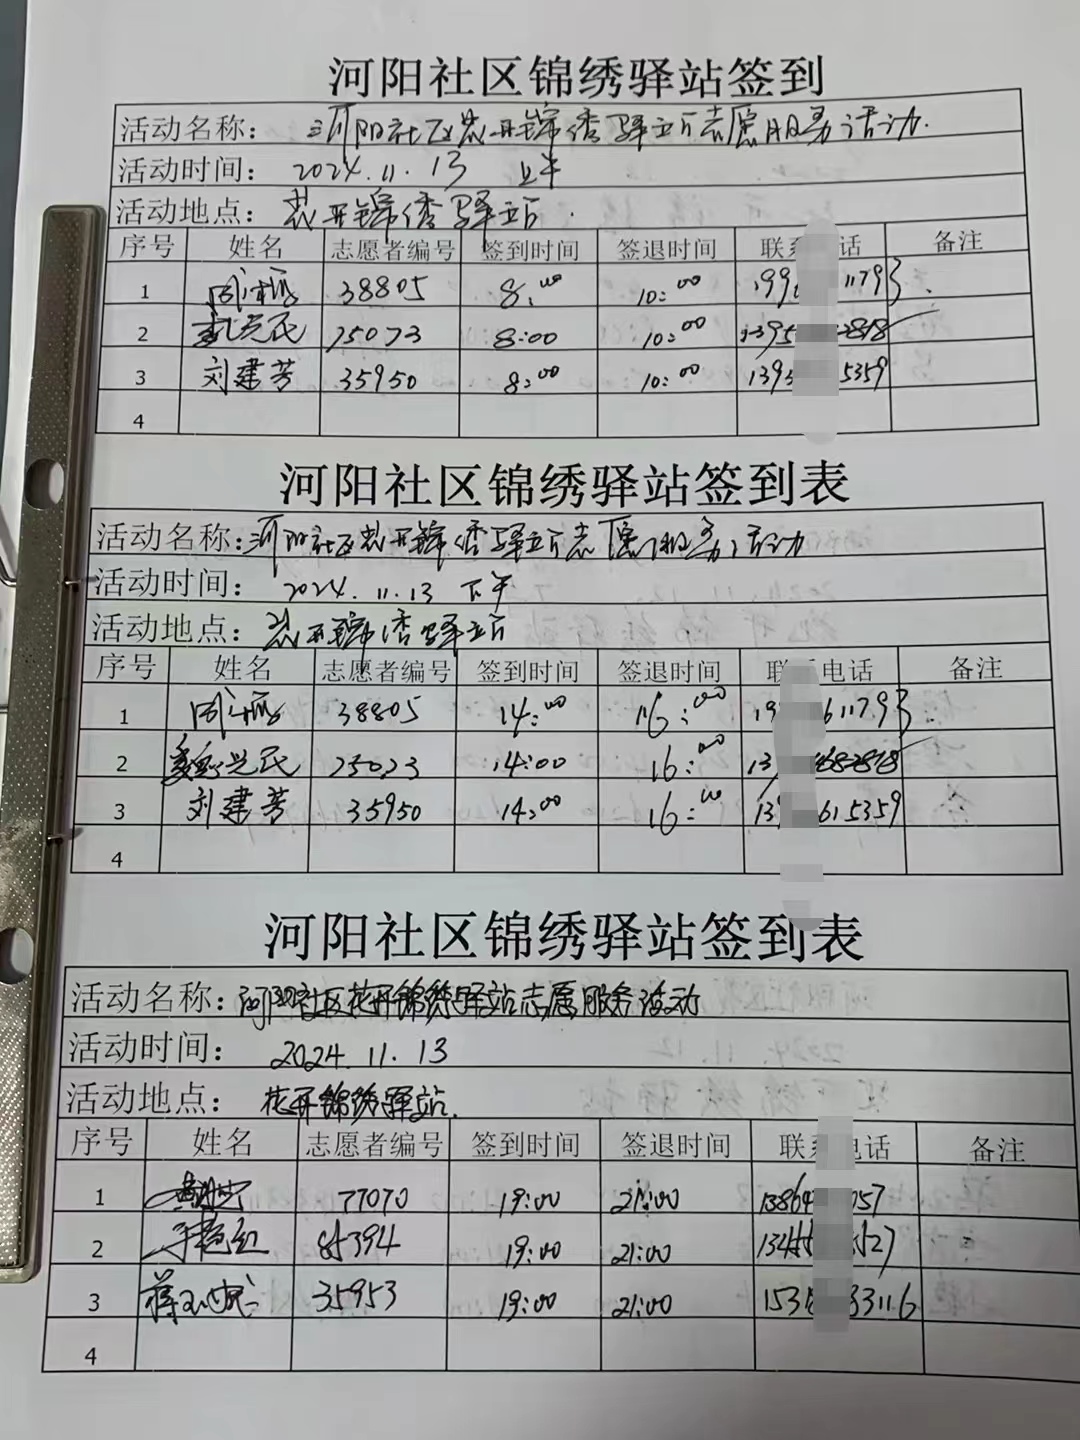 河阳社区锦绣驿站签到
活动名称： 河阳社区花开锦绣驿站志愿服务活动.
活动时间： 2024.11.13 上午
活动地点： 花开锦绣驿站.
序号 姓名 志愿者编号 签到时间 签退时间 联系 话 备注
1 38805 8:00 10:00 11793
2 8:00 10:00
3 刘建芳 35950 8:00 10:00 5359
4
河阳社区锦绣驿站签到表
活动名称：河阳社区花开锦绣驿站志愿服务活动
活动时间： 2024.11.13 下午
活动地点： 花开锦绣驿站
序号 姓名 志愿者编号 签到时间 签退时间 联 电话 备注
1 38805 14:00 16:00 611793
2 14:00 16:00
3 刘建芳 35950 14:00 16:00 615359
4
河阳社区锦绣驿站签到表
活动名称：河阳社区花开锦绣驿站志愿服务活动
活动时间： 2024.11.13
活动地点： 花开锦绣驿站.
序号 姓名 志愿者编号 签到时间 签退时间 联系 电话 备注
1 77070 19:00 21:00 13864 057
2 85394 19:00 21:00
3 35953 19:00 21:00 33116
4